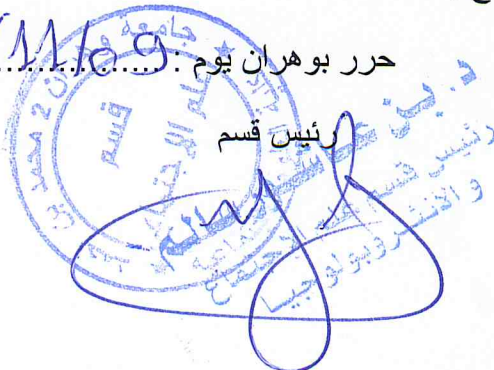 حرر بوهران يوم : ........ 11/09
رئيس قسم
جامعة وهران 2 محمد بن
قسم
علم الاجتماع
د. بن
رئيس قسم علم الاجتماع
و الانثروبولوجيا